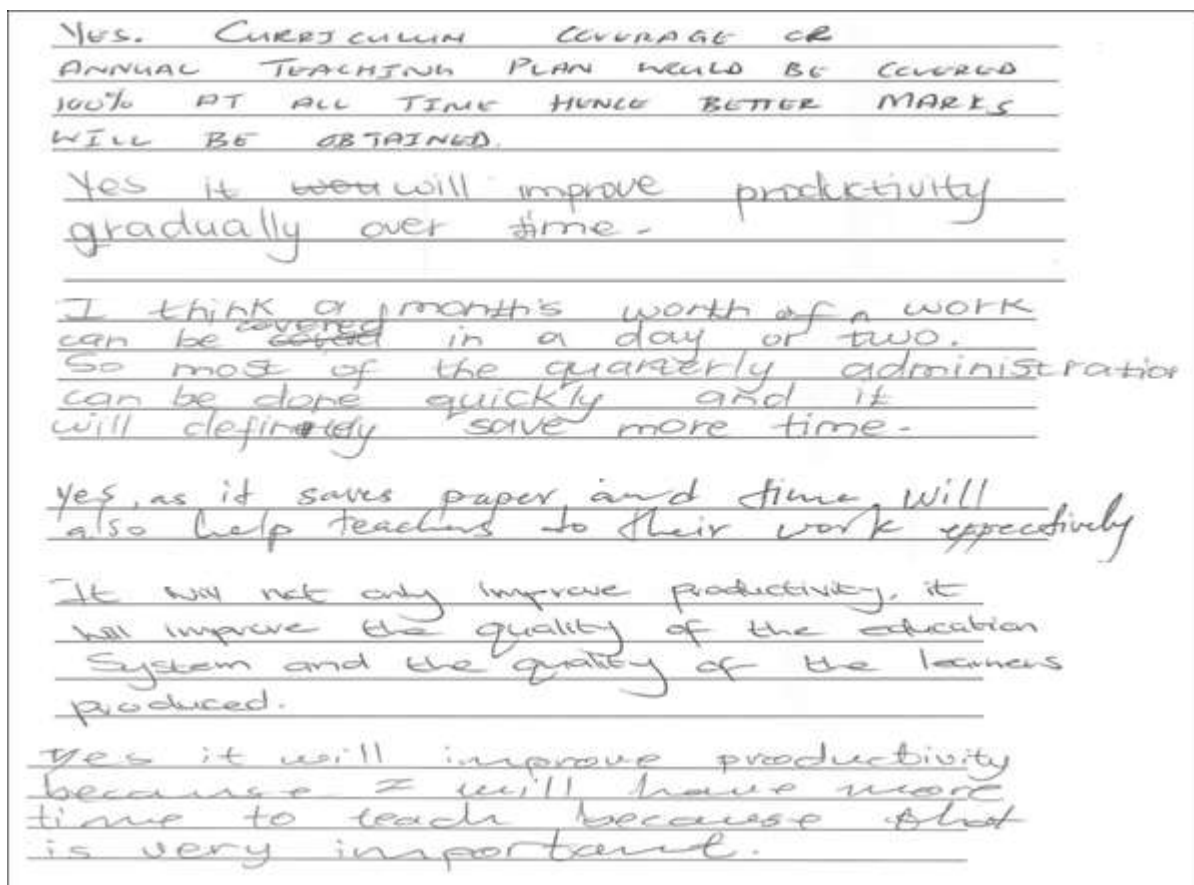 YES. CURRICULUM COVERAGE OR
ANNUAL TEACHING PLAN WOULD BE COVERED
100% AT ALL TIME HENCE BETTER MARKS
WILL BE OBTAINED.
Yes it wou will improve productivity
gradually over time.
I think a month's worth of work
can be coverd covered in a day or two.
So most of the quarterly administration
can be done quickly and it
will definitely save more time.
Yes, as it saves paper and time. Will
also help teachers to their work effectively
It will not only improve productivity, it
will improve the quality of the education
System and the quality of the learners
produced.
Yes it will improve productivity
because I will have more
time to teach because that
is very important.